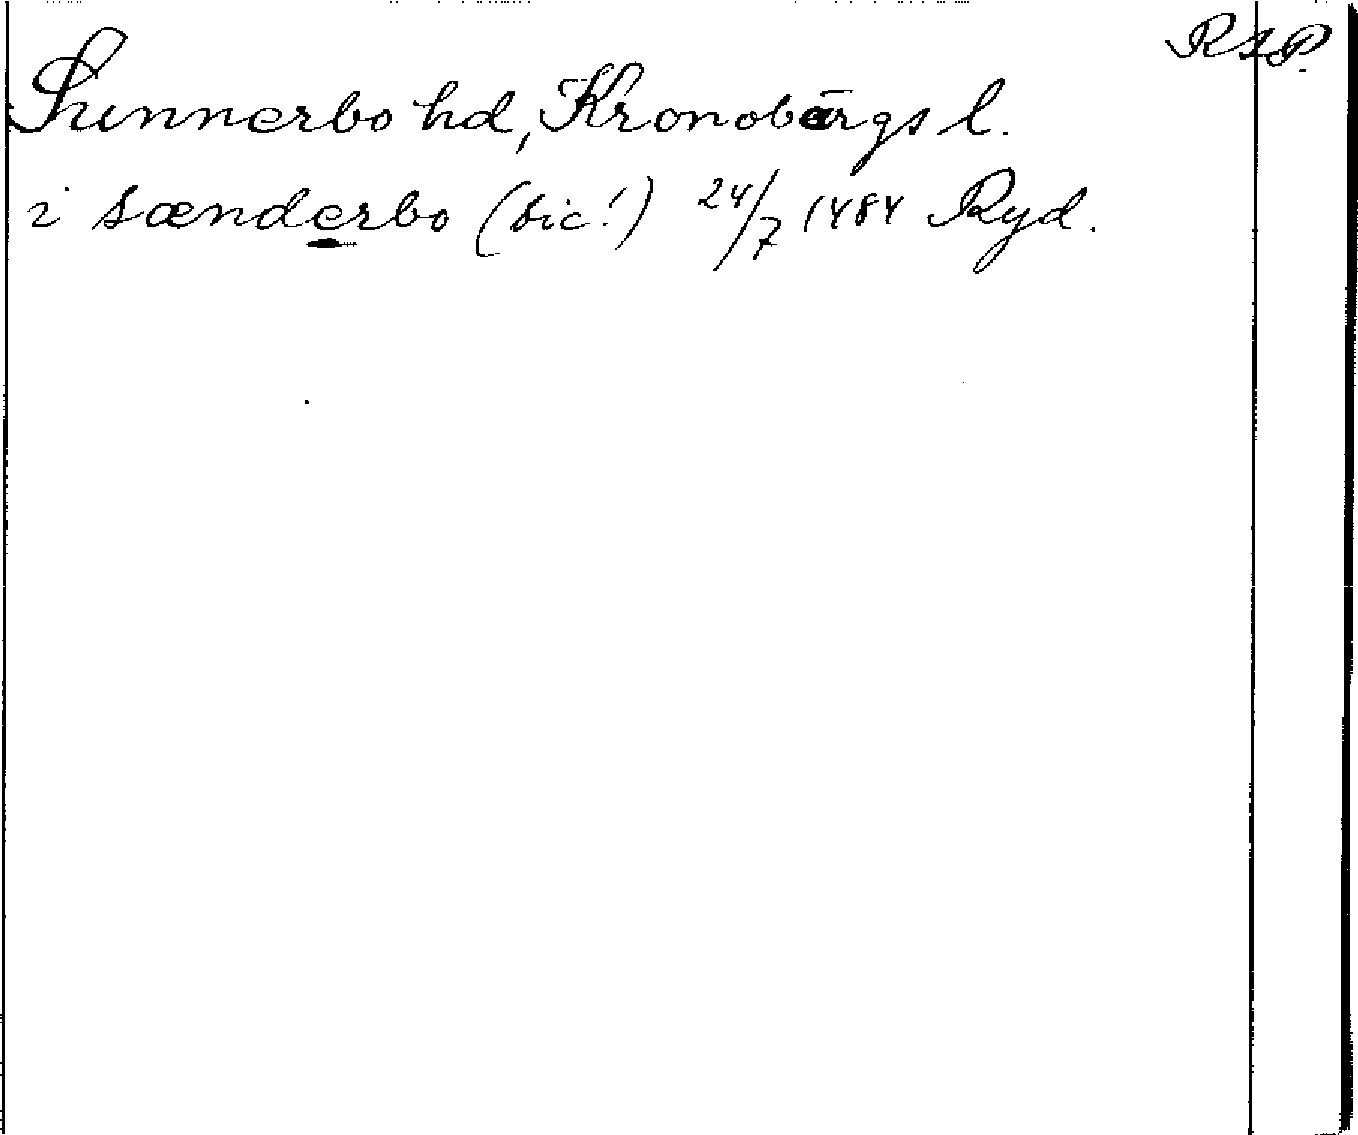 RAP.
Sunnerbo hd, Kronobärgs l.
i sænderbo (sic!) 24/7 1484 Ryd.